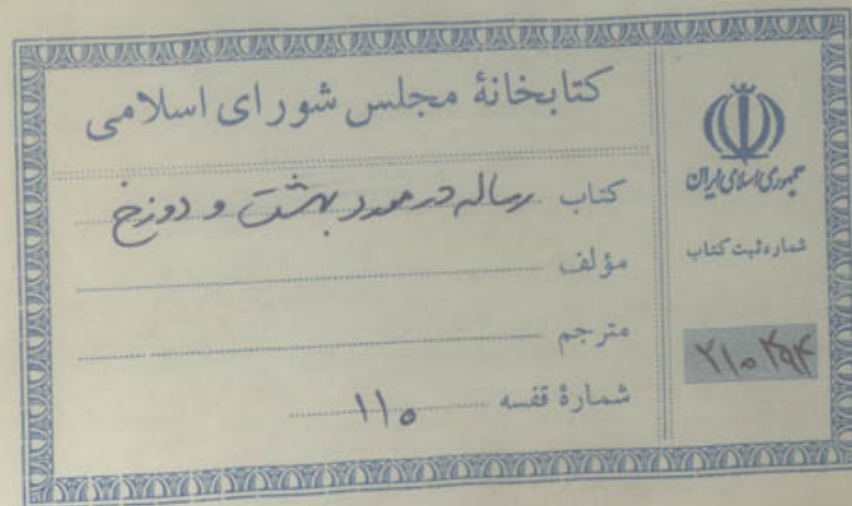 کتابخانهٔ مجلس شورای اسلامی
کتاب رساله در مورد بهشت و دوزخ
مؤلف
مترجم
شمارهٔ قفسه ۱۱۰
جمهوری اسلامی ایران
شماره ثبت کتاب
۲۱۰۴۹۴